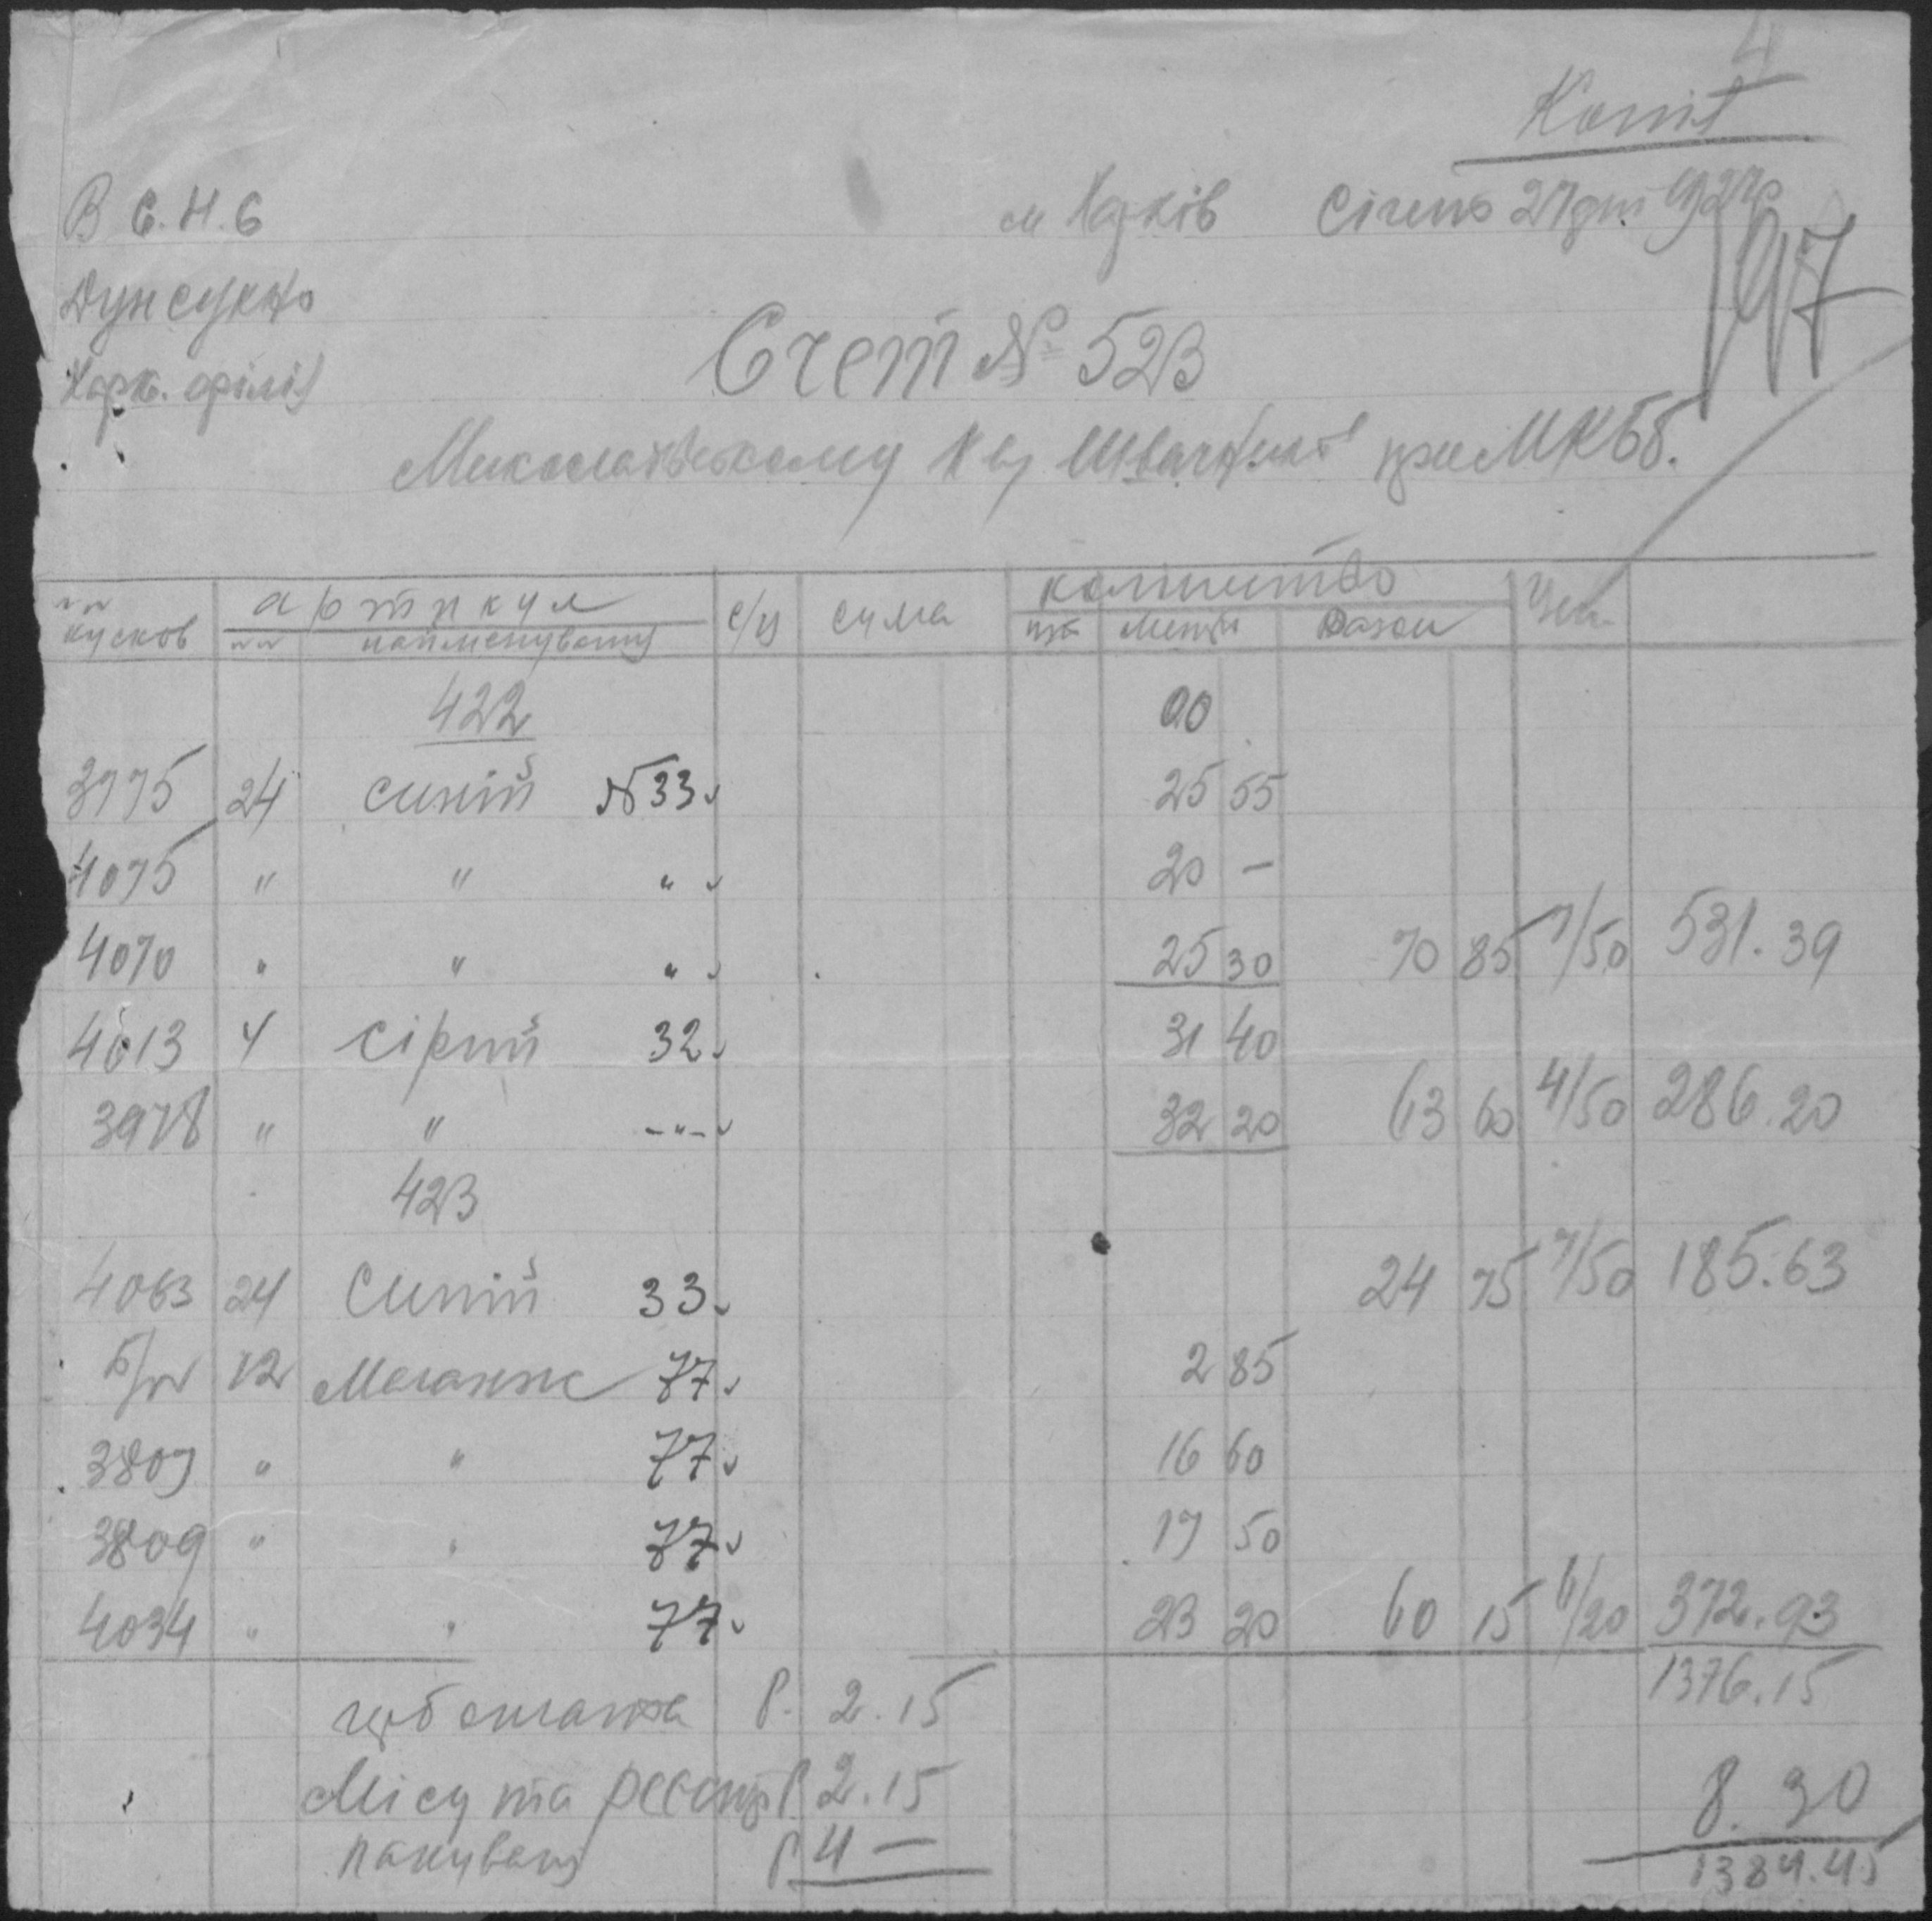 4
Копія
В С.Н.С
м Харків Січень 27 дня 1927р
197
Дунсукно
Харк. філія
Счет № 523
Миколаївському при МКББ.
№№ кусков артикул с/ц сума количество Цена
№№ найменування шт Метри Разом
422 00
3975 24 синій № 33 25 55
4075 " " " 20 —
4070 " " " 25 30 70 85 7/50 531.39
4013 4 сірий 32 31 40
3978 " " -"- 32 20 63 60 4/50 286.20
423
4063 24 Синій 33 24 75 7/50 185.63
Б/№ 12 Меланж 77 2 85
3807 " " 77 16 60
3809 " " 77 17 50
4034 " " 77 23 20 60 15 6/20 372.93
1376.15
герб Р. 2.15
Місц та реєстр Р. 2.15 8.30
пакування Р 4 —
1384.45